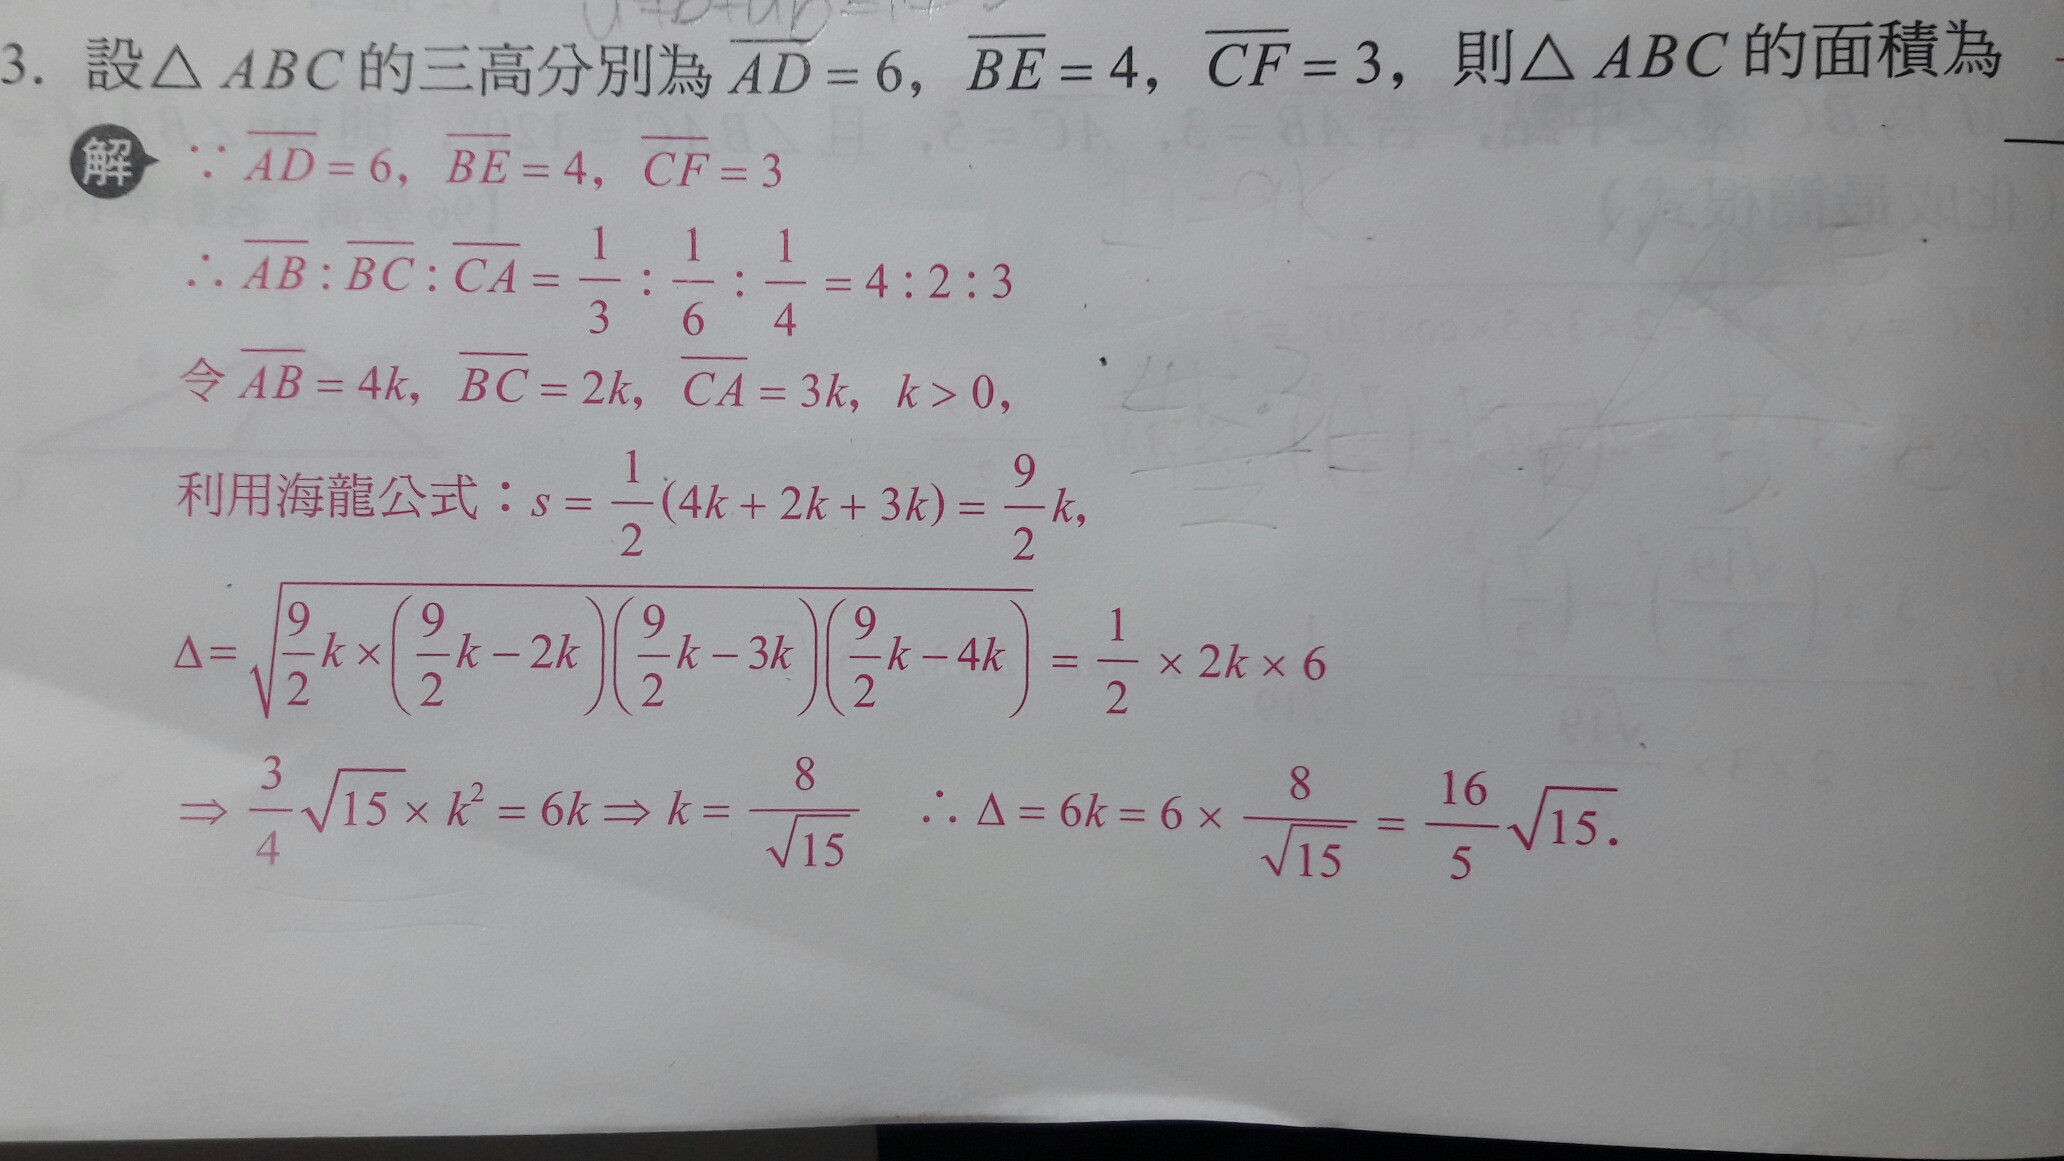 3. 設△ABC的三高分別為 AD = 6, BE = 4, CF = 3, 則△ABC的面積為
解 ∵ AD = 6, BE = 4, CF = 3
∴ AB : BC : CA = 1/3 : 1/6 : 1/4 = 4 : 2 : 3
令 AB = 4k, BC = 2k, CA = 3k, k > 0,
利用海龍公式：s = 1/2 (4k + 2k + 3k) = 9/2 k,
Δ = √(9/2 k × (9/2 k − 2k)(9/2 k − 3k)(9/2 k − 4k)) = 1/2 × 2k × 6
⇒ 3/4 √15 × k² = 6k ⇒ k = 8/√15 ∴ Δ = 6k = 6 × 8/√15 = 16/5 √15.